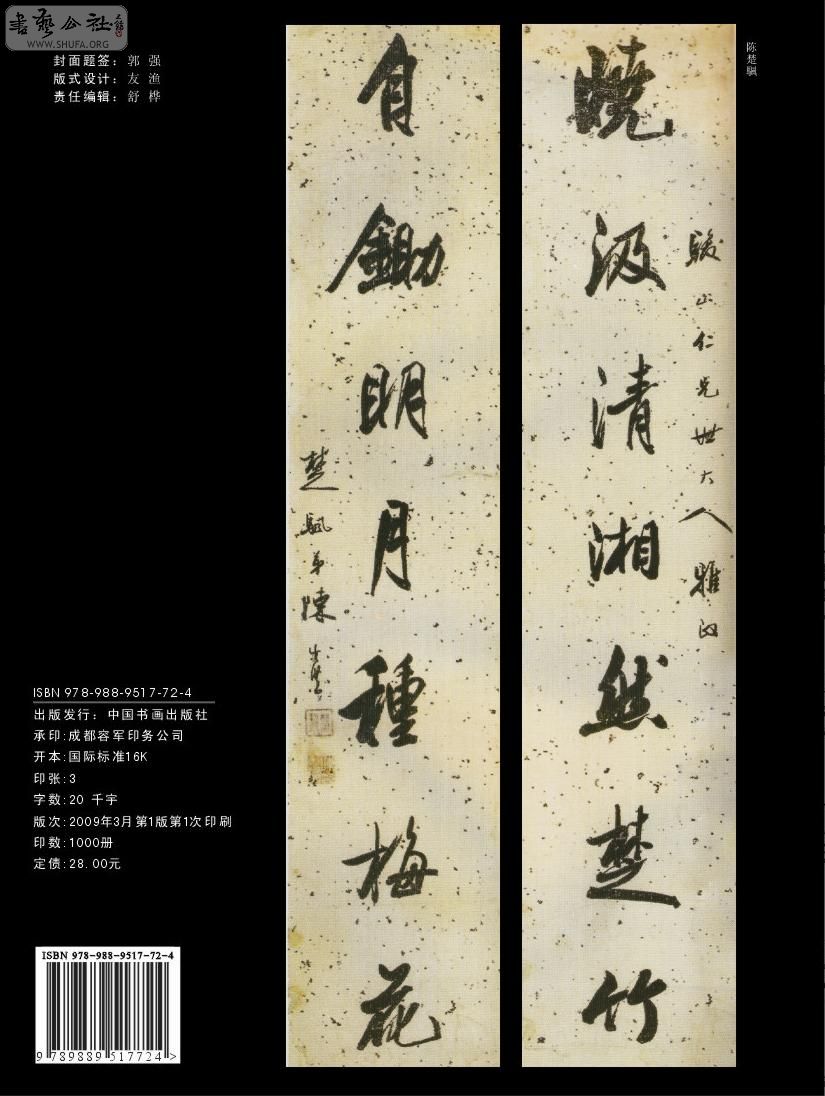 書藝公社
WWW.SHUFA.ORG
封面题签：郭 强
版式设计：友 渔
责任编辑：舒 桦
陈楚骊
駿山仁兄世大人雅政
曉汲清湘然楚竹
自鋤明月種梅花
楚
弟陳
ISBN 978-988-9517-72-4
出版发行：中国书画出版社
承印:成都容军印务公司
开本:国际标准16K
印张:3
字数:20 千宇
版次:2009年3月第1版第1次印刷
印数:1000册
定债:28.00元
ISBN 978-988-9517-72-4
9 789889 517724 >